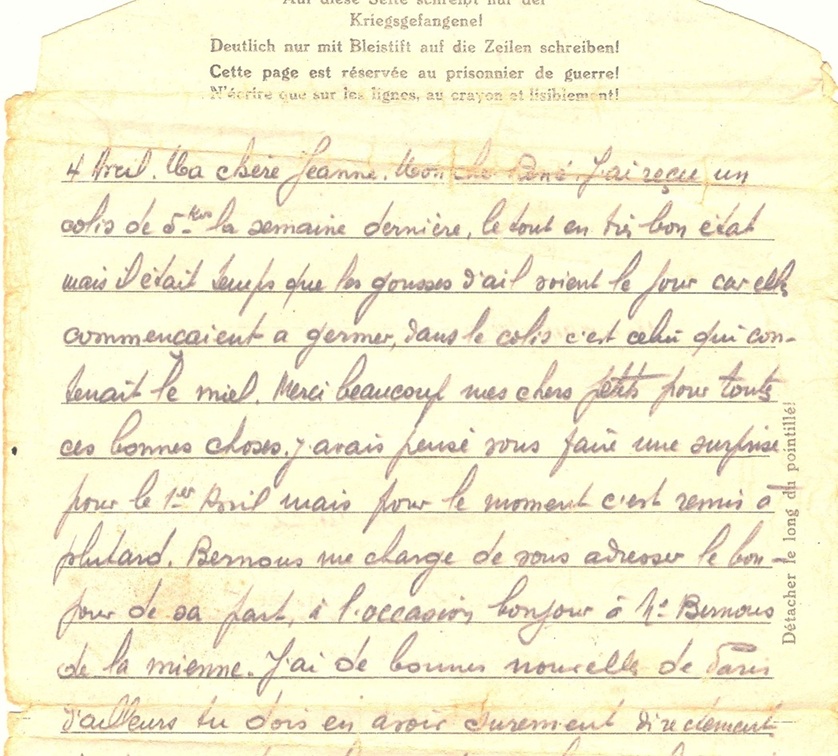 Auf diese Seite schreibt nur der
Kriegsgefangene!
Deutlich nur mit Bleistift auf die Zeilen schreiben!
Cette page est réservée au prisonnier de guerre!
N'écrire que sur les lignes, au crayon et lisiblement!
4 Avril. Ma chère Jeanne. Mon cher René. J'ai reçue un
colis de 5 kgs la semaine dernière, le tout en très bon état
mais il était temps que les gousses d'ail voient le jour car elles
commencaient a germer, dans le colis c'est celui qui con-
tenait le miel. Merci beaucoup mes chers petits pour toutes
ces bonnes choses. j'avais pensé vous faire une surprise
pour le 1er Avril mais pour le moment c'est remis à
plutard. Bernous me charge de vous adresser le bon-
jour de sa part, à l'occasion bonjour à Me Bernous
de la mienne. J'ai de bonnes nouvelles de Paris
d'ailleurs tu dois en avoir surement directement
Détacher le long du pointillé!